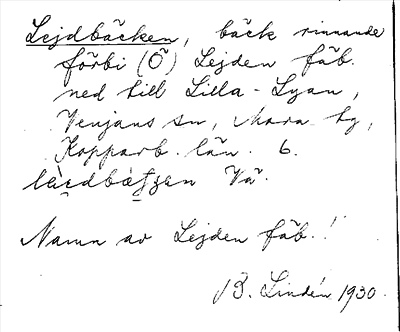 Lejdbäcken, bäck rinnande
förbi (Ö) Lejden fäb.
ned till Lilla-Lyan,
Venjans sn, Mora tg,
Kopparb. län. 6.
Vä.
Namn av Lejden fäb.!
B. Lindén 1930.